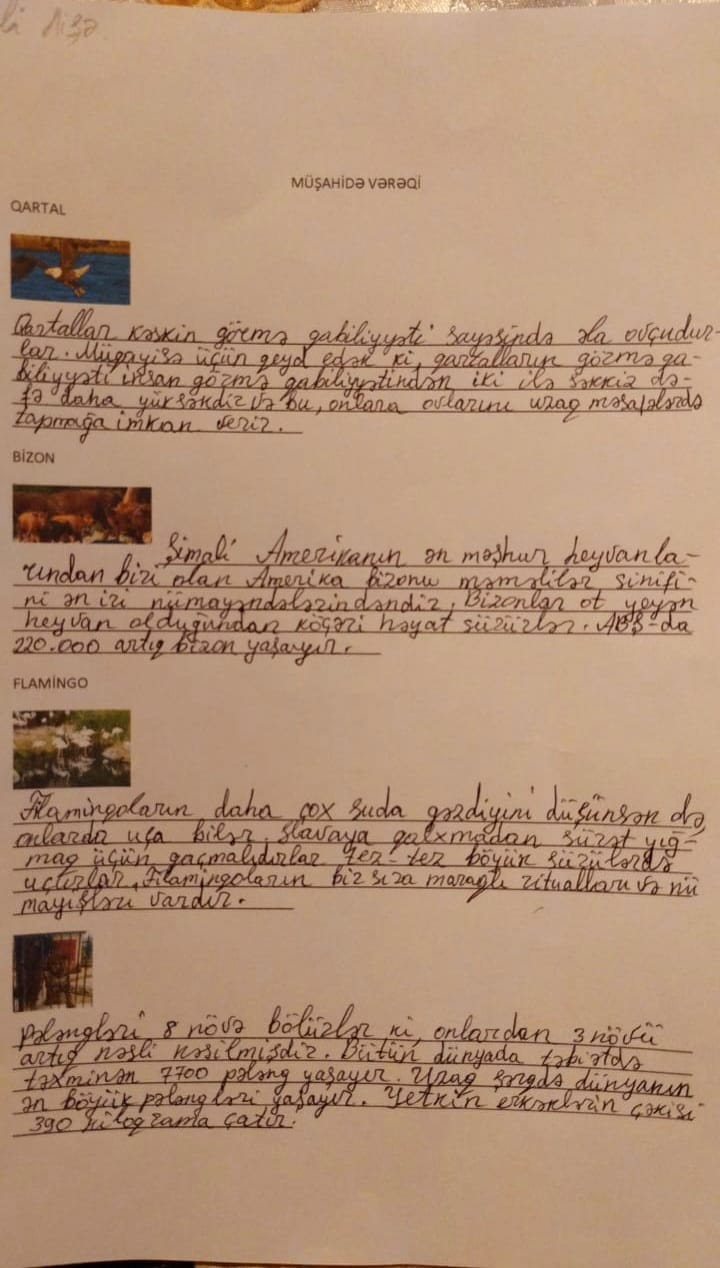 MÜŞAHİDƏ VƏRƏQİ
QARTAL
Qartallar kəskin görmə qabiliyyəti sayəsində əla ovçudur-
lar. Müqayisə üçün qeyd edək ki, qartalların görmə qa-
biliyyəti insan görmə qabiliyyətindən iki ilə səkkiz də-
fə daha yüksəkdir və bu, onlara ovlarını uzaq məsafələrdə
tapmağa imkan verir.
BİZON
Şimali Amerikanın ən məşhur heyvanla-
rından biri olan Amerika bizonu məməlilər sinifi-
ni ən iri nümayəndələrindəndir. Bizonlar ot yeyən
heyvan olduğundan köçəri həyat sürürlər. ABŞ-da
220.000 artıq bizon yaşayır.
FLAMİNGO
Filamingoların daha çox suda gəzdiyini düşünsən də,
onlarda uça bilər. Havaya qalxmadan sürət yığ-
maq üçün qaçmalıdırlar. Tez-tez böyük sürülərdə
uçurlar. Filamingoların bir sıra maraqlı ritualları və nü
mayişləri vardır.
Pələngləri 8 növə bölürlər ki, onlardan 3 növü
artıq nəsli kəsilmişdir. Bütün dünyada təbiətdə
təxminən 7700 pələng yaşayır. Uzaq Şərqdə dünyanın
ən böyük pələngləri yaşayır. Yetkin erkəklərin çəkisi
390 kiloqrama çatır.